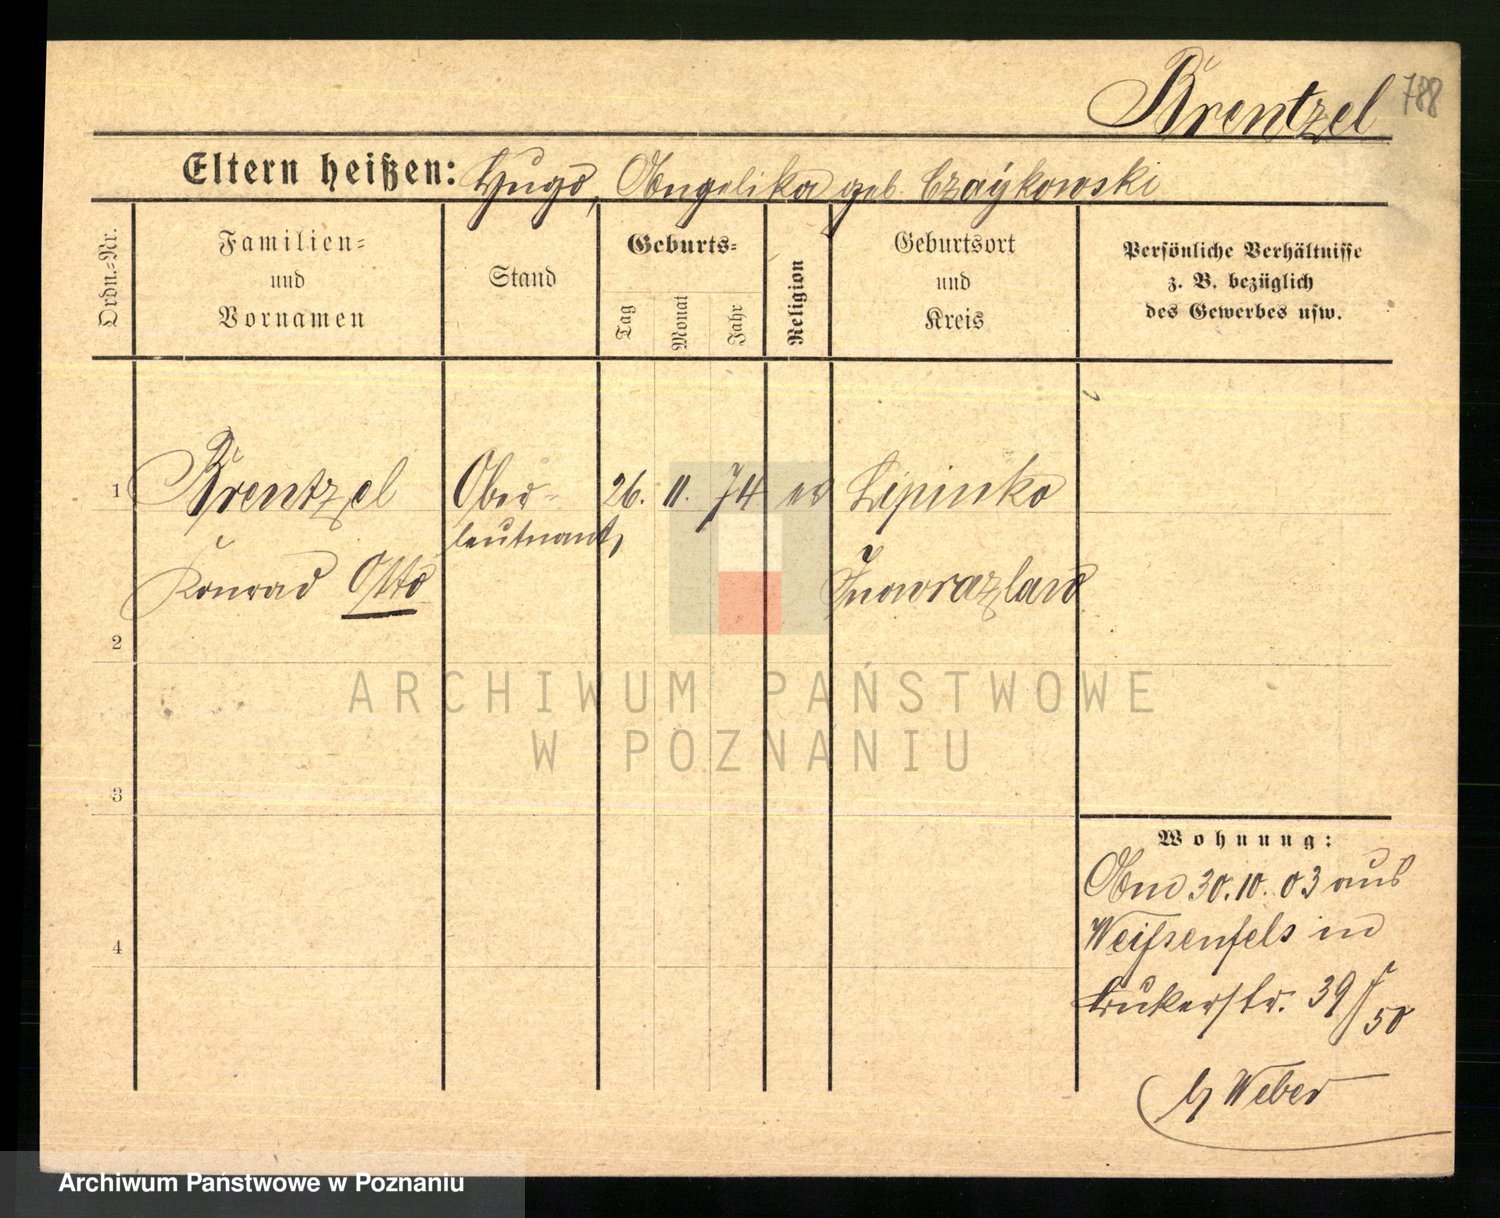 Brentzel 788
Eltern heißen: Hugo, Angelika geb. Czaykowski
Ordn.-Nr.
Familien-
und
Vornamen
Stand
Geburts-
Tag
Monat
Jahr
Religion
Geburtsort
und
Kreis
Persönliche Verhältnisse
z. B. bezüglich
des Gewerbes usw.
1 Brentzel Ober- 26. 11. 74 ev Lipinko
leutnant,
Konrad Otto Inowrazlaw
2
3
4
Wohnung:
Am 30.10.03 aus
Weißenfels in
39 I/50
Weber
ARCHIWUM PAŃSTWOWE
W POZNANIU
Archiwum Państwowe w Poznaniu